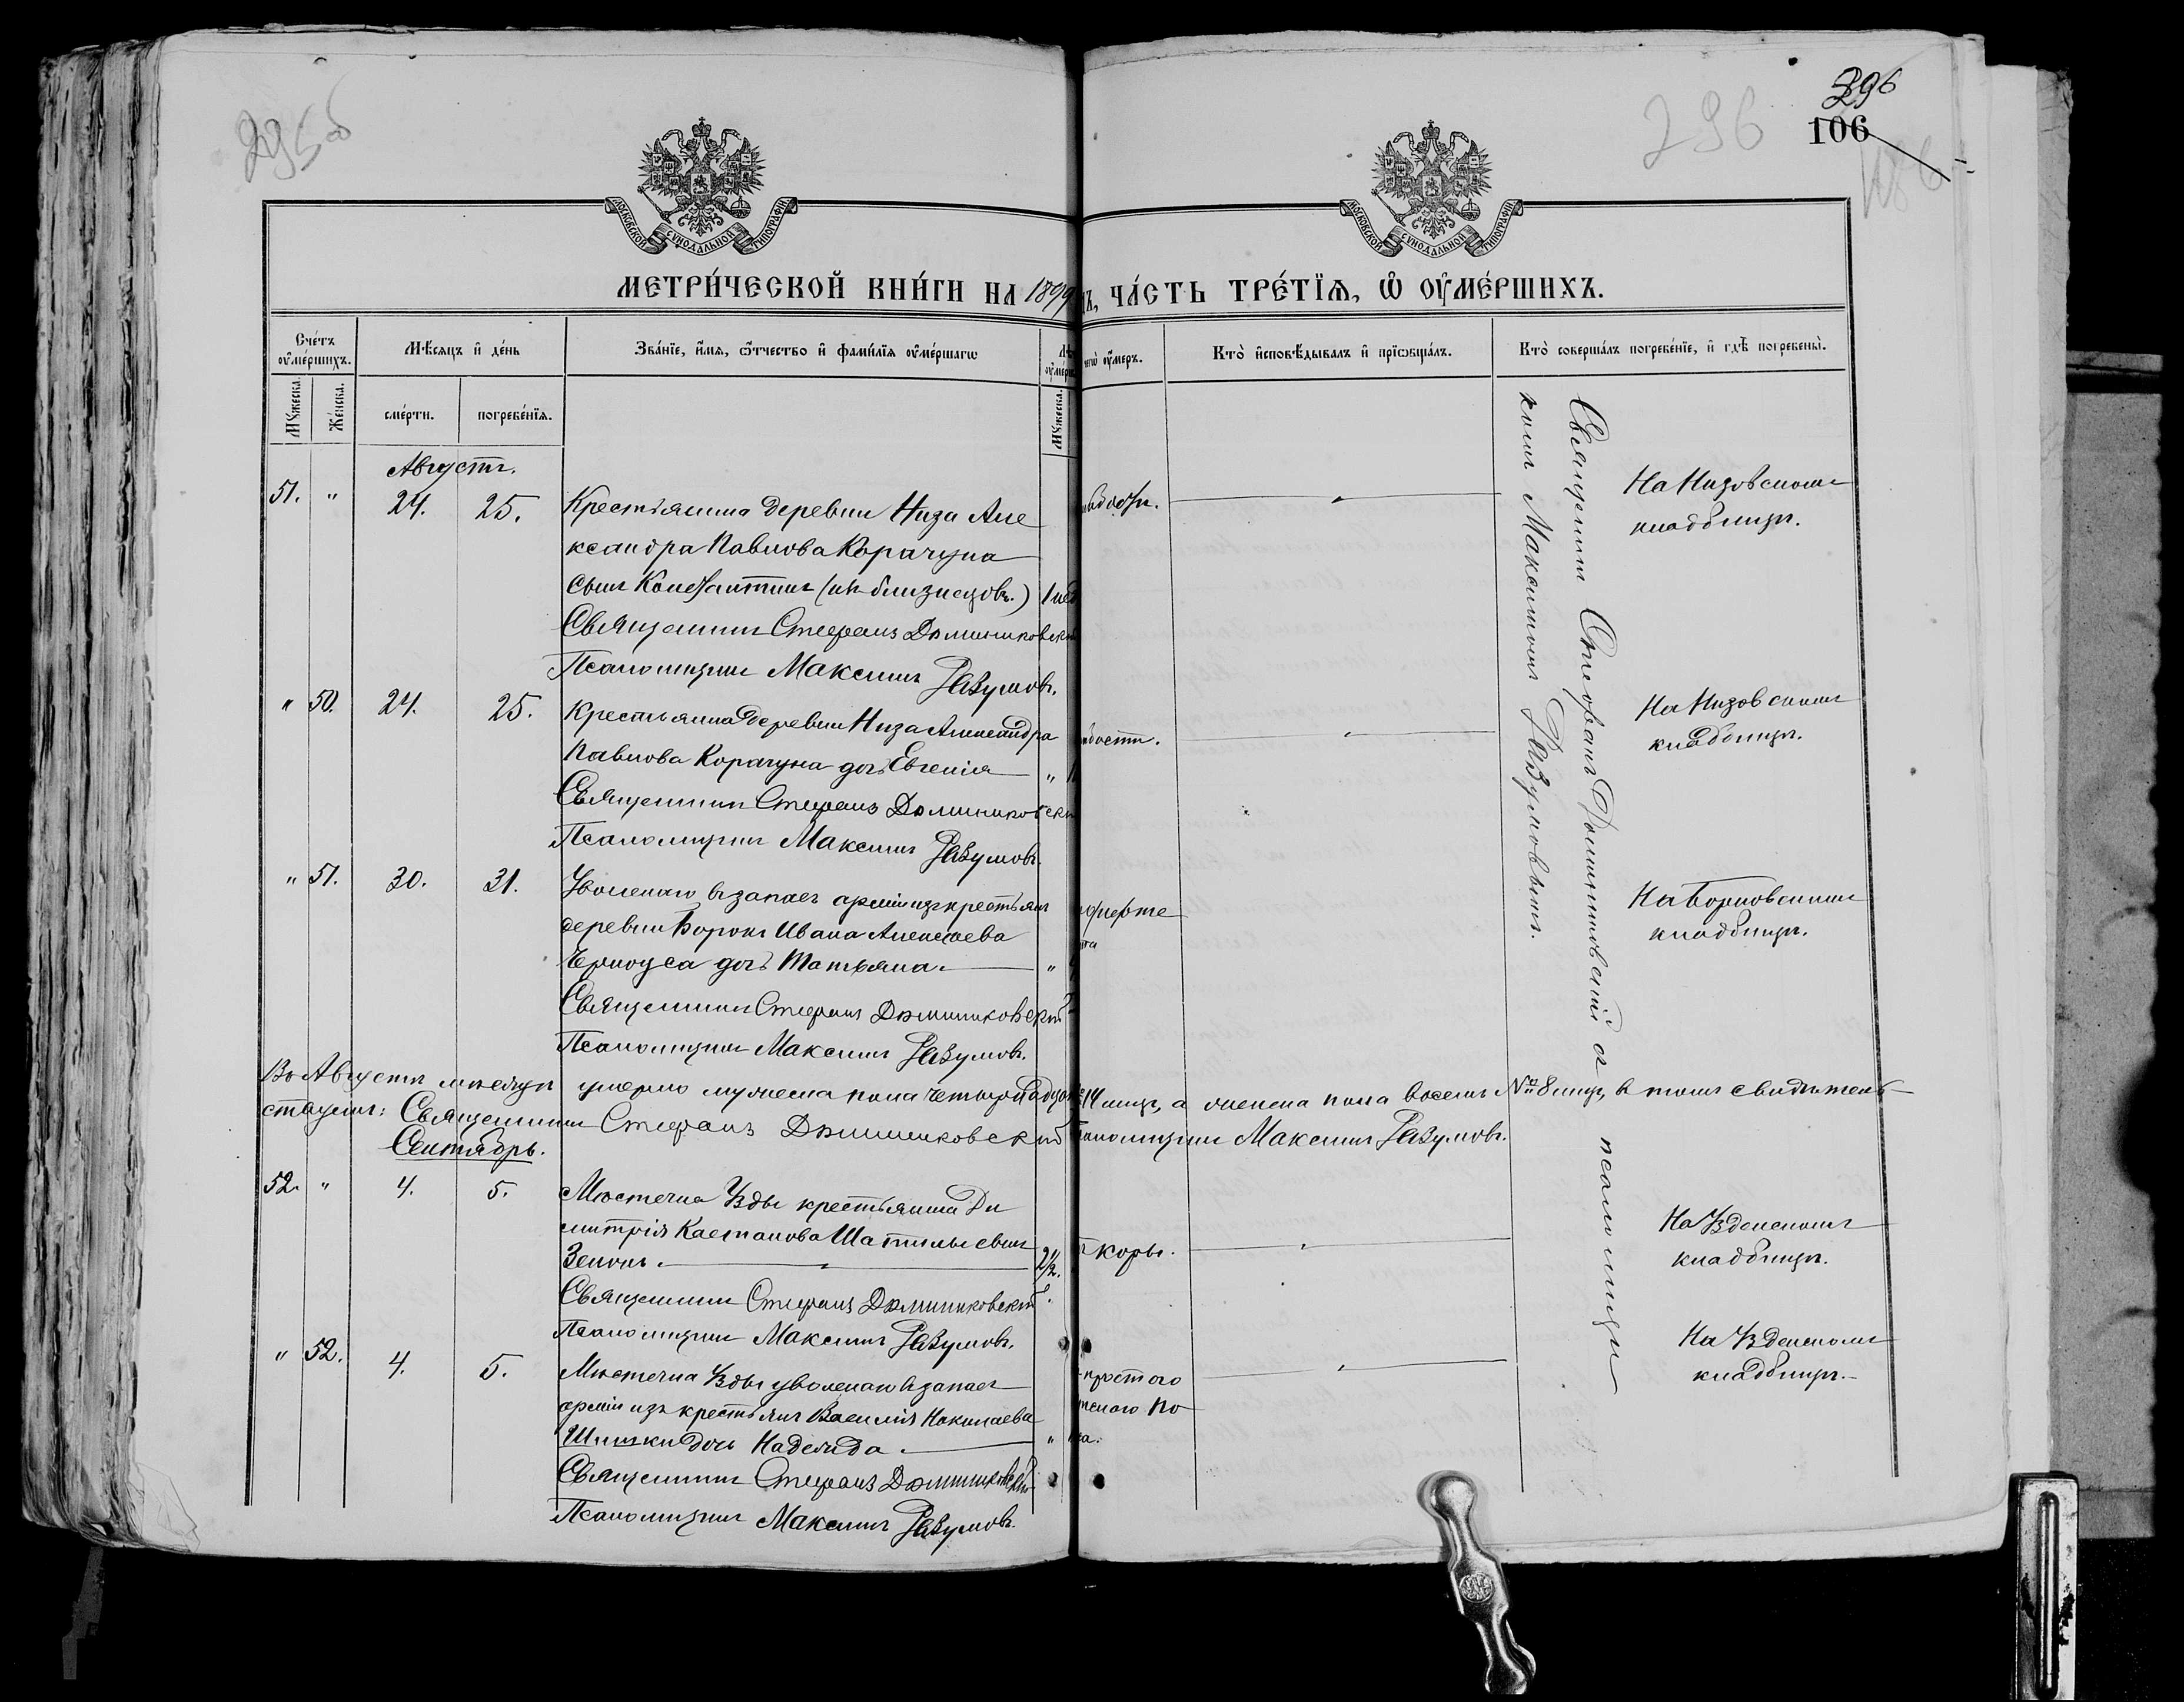 295об
296
396
106
МОСКОВСКОЙ СѴНОДАЛЬНОЙ ТИПОГРАФІИ
МОСКОВСКОЙ СѴНОДАЛЬНОЙ ТИПОГРАФІИ
МЕТРИ́ЧЕСКОЙ КНИ́ГИ НА 1899
Ъ, ЧА́СТЬ ТРЕ́ТЇѦ, Ѡ ОУМЕ́РШИХЪ.
Сче́тъ оуме́ршихъ.
Мѣ́сѧцъ и де́нь
Зва́нїе, и́мѧ, ѻ́тчество и фами́лїѧ оуме́ршагѡ
Лѣ
оуме́рш
чегѡ̀ оу́меръ.
Кто̀ и́сповѣ́дывалъ и прїѡбща́лъ.
Кто̀ соверша́лъ погребе́нїе, и гдѣ̀ погребены̀.
Мꙋжеска.
Же́нска.
сме́рти.
погребе́нїѧ.
Мꙋжеска.
Августъ.
51. " 24. 25. Крестьянина деревни Низа Але
ксандра Павлова Корачуна
сынъ Константинъ (изъ близнецовъ.) 1 нед
Священникъ Стефанъ Доминиковскій
Псаломщикъ Максимъ Разумовъ.
На Низовскомъ
кладбищѣ.
" 50. 24. 25. Крестьянина деревни Низа Александра
Павлова Корачуна дочь Евгенія "
Священникъ Стефанъ Доминиковскій
Псаломщикъ Максимъ Разумовъ.
На Низовскомъ
кладбищѣ.
" 51. 30. 31. Уволенаго въ запасъ арміи изъ крестьянъ
деревни Борокъ Ивана Алексѣева
Черноуса дочь Татьяна. "
Священникъ Стефанъ Доминиковскій
Псаломщикъ Максимъ Разумовъ.
На Борковскомъ
кладбищѣ.
Въ Августѣ мѣсяцѣ умерло мужеска пола четырнадцать 14 лицъ, а женска пола восемь № 8 лицъ, въ томъ свидѣтель
ствуемъ: Священникъ Стефанъ Доминиковскій Псаломщикъ Максимъ Разумовъ.
Сентябрь.
52. " 4. 5. Мѣстечка Узды крестьянина Ди
митрія Касьянова Шатилы сынъ
Зенонъ. 2½. корь.
Священникъ Стефанъ Доминиковскій.
Псаломщикъ Максимъ Разумовъ.
На Узденскомъ
кладбищѣ.
" 52. 4. 5. Мѣстечка Узды уволенаго въ запасъ
арміи изъ крестьянъ Василія Николаева
Шишки дочь Надежда. "
простого
по
са.
Священникъ Стефанъ Доминиковскій
Псаломщикъ Максимъ Разумовъ.
На Узденскомъ
кладбищѣ.
Священникъ Стефанъ Доминиковскій съ псаломщи
комъ Максимомъ Разумовымъ.